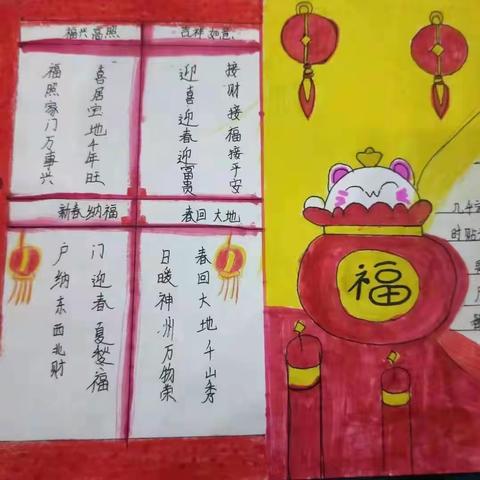 福兴高照
喜居宝地千年旺
福照家门万事兴
吉祥如意
接财接福接平安
迎喜迎春迎富贵
新春纳福
门迎春夏秋冬福
户纳东西北财
春回大地
春回大地千山秀
日暖神州万物荣
福
几千
时贴